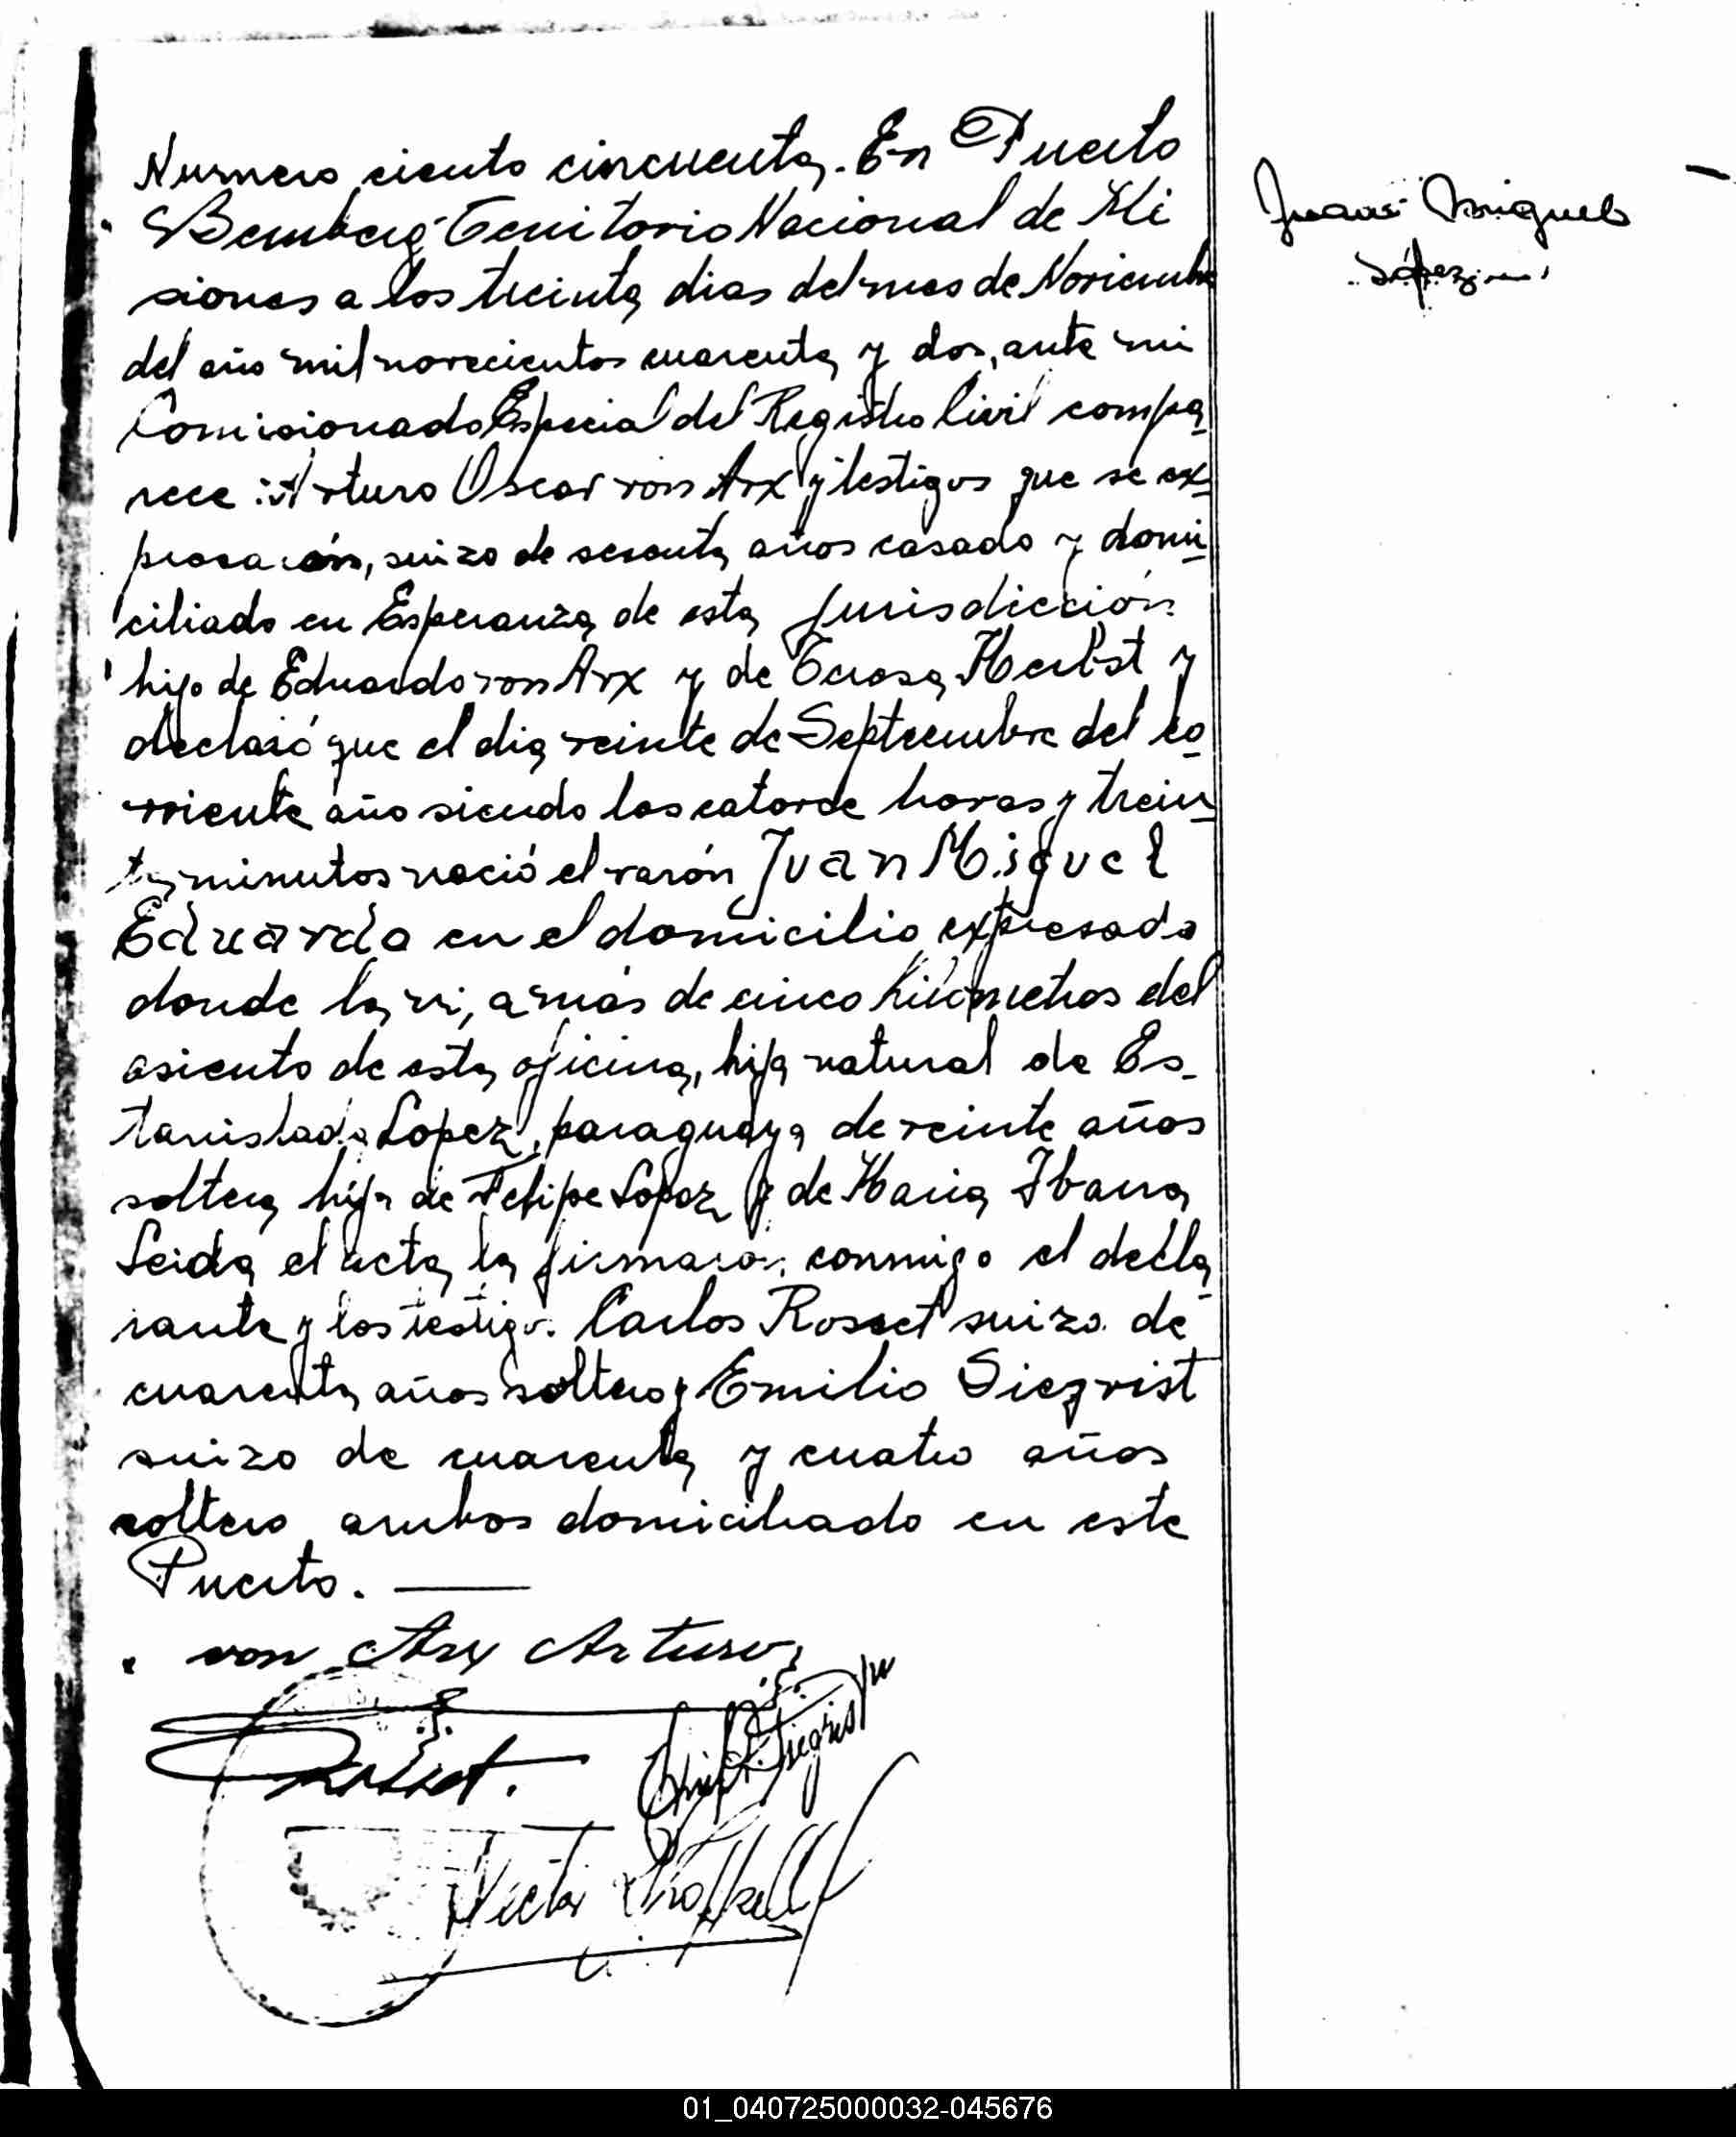 Numero ciento cincuenta. En Puerto
Bemberg Territorio Nacional de Mi
siones a los treinta dias del mes de Noviembre
del año mil novecientos cuarenta y dos, ante mi
Comisionado Especial del Registro Civil compa
rece: Arturo Oscar von Arx y testigos que se ex
presarán, suizo de sesenta años casado y domi
ciliado en Esperanza de esta Jurisdicción
hijo de Eduardo von Arx y de Teresa Herbst y
declaró que el dia veinte de Septiembre del co
rriente año siendo las catorce horas y trein
ta minutos nació el varón Juan Miguel
Eduardo en el domicilio expresado
donde lo vi, a más de cinco kilometros del
asiento de esta oficina, hijo natural de Es-
tanislada Lopez, paraguaya de veinte años
soltera hija de Felipe Lopez y de Maria Ibarra
Leida el acta la firmaron conmigo el decla
rante y los testigos Carlos Rosset suizo de
cuarenta años soltero y Emilio Siegrist
suizo de cuarenta y cuatro años
soltero ambos domiciliado en este
Puerto.
von Arx Arturo
Rosset.
Emil Siegrist
Victor
Juan Miguel
López
01_040725000032-045676